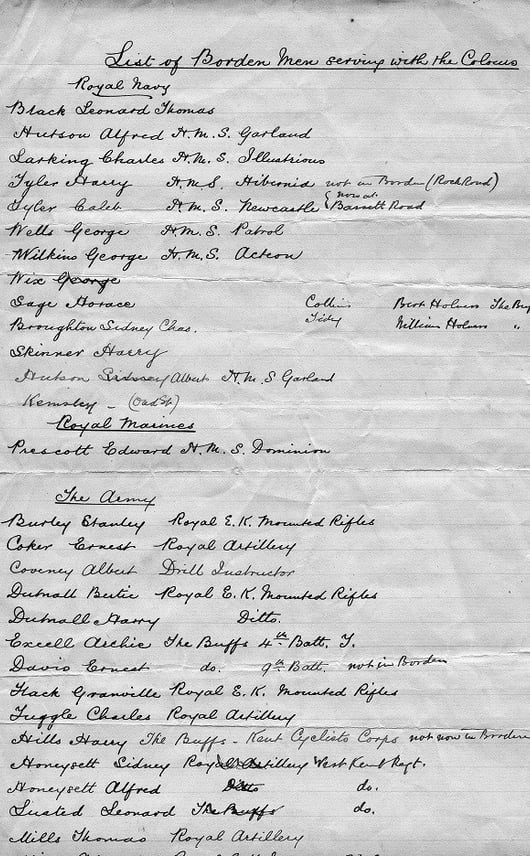 List of Borden Men serving with the Colours
Royal Navy
Black Leonard Thomas
Hutson Alfred H.M.S. Garland
Larking Charles H.M.S. Illustrious
Tyler Harry H.M.S. Hibernia not in Borden (Rock Road)
Tyler Caleb H.M.S. Newcastle { now at Barrett Road
Wells George H.M.S. Patrol
Wilkins George H.M.S. Acteon
Wix George
Sage Horace Collins Bert Holmes The
Broughton Sidney Chas. Tidy William Holmes "
Skinner Harry
Hutson Sidney Albert H.M.S Garland
Kemsley - (Oad St.)
Royal Marines
Prescott Edward H.M.S. Dominion
The Army
Burley Stanley Royal E.K. Mounted Rifles
Coker Ernest Royal Artillery
Coveney Albert Drill Instructor
Dutnall Bertie Royal E.K. Mounted Rifles
Dutnall Harry Ditto.
Excell Archie The Buffs 4th Batt. T.
Davis Ernest do. 9th Batt. not in Borden
Flack Granville Royal E.K. Mounted Rifles
Fuggle Charles Royal Artillery
Hills Harry The Buffs - Kent Cyclists Corps not now in Borden
Honeysett Sidney Royal Artillery West Kent Regt.
Honeysett Alfred Ditto do.
Lusted Leonard The Buffs do.
Mills Thomas Royal Artillery